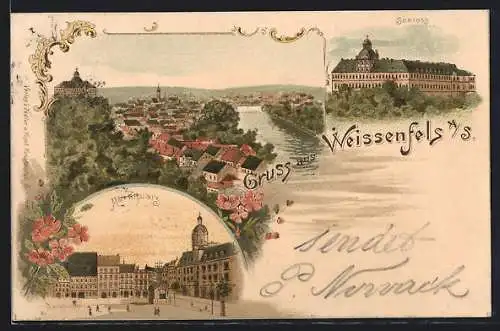 Schloss
Gruss aus Weissenfels a/S.
Marktplatz
sendet
P. Nowack